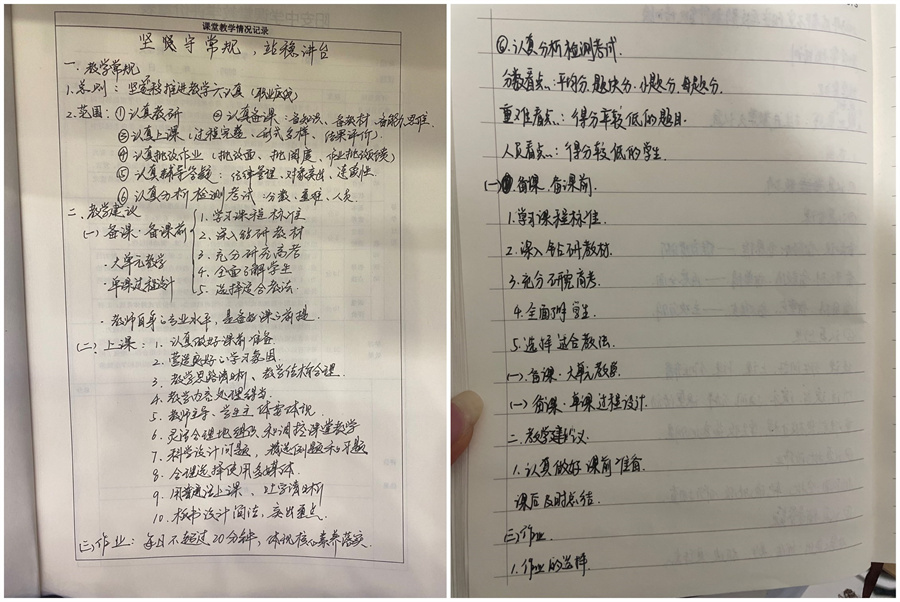 课堂教学情况记录
坚守常规，站稳讲台
一、教学常规
1.总则：坚定推进教学六认真（职业底线）
2.范围：①认真教研 ②认真备课：备知识、备教材、备能力思维
③认真上课（过程完整、形式多样、结果评价）
④认真批改作业（批改面、批阅度、作业批改反馈）
⑤认真辅导答疑：结伴管理、对象突出、连贯性
⑥认真分析检测考试：分数、重难、人员
二、教学建议
（一）备课·备课前
1.学习课程标准
2.深入钻研教材
3.充分研究高考
4.全面了解学生
5.选择适合教法
·大单元教学
·单课过程设计
·教师自身的专业水平，是备好课的前提
（二）上课：1.认真做好课前准备
2.营造良好的学习氛围
3.教学思路清晰、教学结构合理
4.教学内容处理得当
5.教师主导、学生主体要体现
6.灵活合理地组织和调控课堂教学
7.科学设计问题，精选例题和习题
8.合理选择使用多媒体
9.用普通话上课、吐字清晰
10.板书设计简洁，突出重点
（三）作业：每日不超过20分钟，体现核心素养落实
⑥.认真分析检测考试.
分数看点：平均分.题块分.小题分.每题分.
重难看点：得分率较低的题目.
人员看点：得分较低的学生.
(一).备课.备课前.
1.学习课程标准.
2.深入钻研教材.
3.充分研究高考.
4.全面了解学生.
5.选择适合教法.
(一).备课.大单元教学.
(一)备课.单课过程设计.
二.教学建议.
1.认真做好课前准备.
课后及时总结.
三)作业.
1.作业的选择.